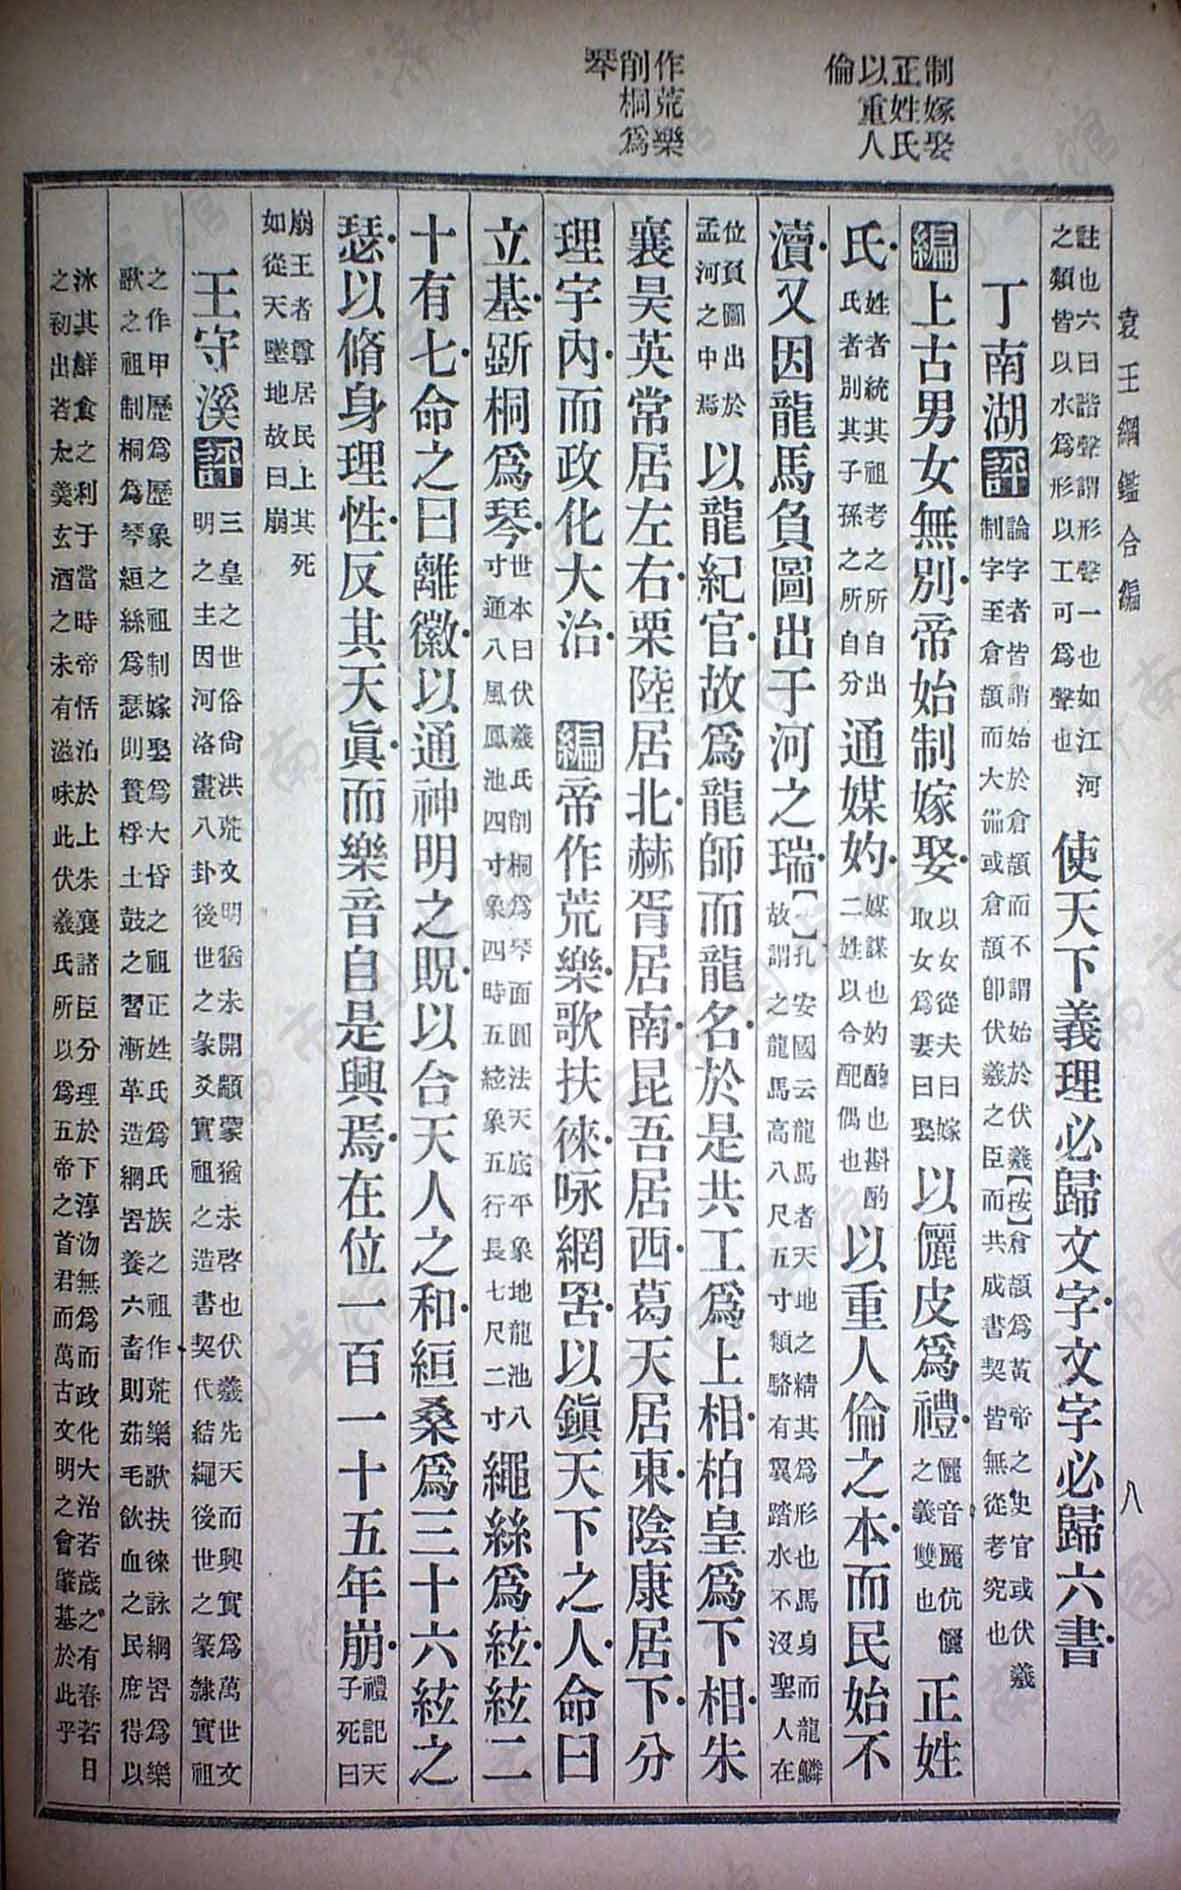 袁王綱鑑合編
八
制嫁娶
正姓氏
以重人
倫
作荒樂
削桐爲
琴
註也六曰諧聲謂形聲一也如江河
之類皆以水爲形以工可爲聲也
使天下義理必歸文字文字必歸六書
丁南湖評
論字者皆謂始於倉頡而不謂始於伏羲【按】倉頡爲黃帝之史官或伏羲
制字至倉頡而大備或倉頡卽伏羲之臣而共成書契皆無從考究也
編上古男女無別帝始制嫁娶
以女從夫曰嫁
取女爲妻曰娶
以儷皮爲禮
儷音麗伉儷
之義雙也
正姓
氏
姓者統其祖考之所自出
氏者別其子孫之所自分
通媒妁
媒謀也妁酌也斟酌
二姓以合配偶也
以重人倫之本而民始不
瀆又因龍馬負圖出于河之瑞
【】孔安國云龍馬者天地之精其爲形也馬身而龍鱗
故謂之龍馬高八尺五寸類駱有翼踏水不沒聖人在
位負圖出於
孟河之中焉
以龍紀官故爲龍師而龍名於是共工爲上相柏皇爲下相朱
襄昊英常居左右栗陸居北赫胥居南昆吾居西葛天居東陰康居下分
理宇內而政化大治
編帝作荒樂歌扶徠咏網罟以鎭天下之人命曰
立基斲桐爲琴
世本曰伏羲氏削桐爲琴面圓法天底平象地龍池八
寸通八風鳳池四寸象四時五絃象五行長七尺二寸
繩絲爲絃絃二
十有七命之曰離徽以通神明之貺以合天人之和絙桑爲三十六絃之
瑟以脩身理性反其天眞而樂音自是興焉在位一百一十五年崩
禮記天
子死曰
崩王者尊居民上其死
如從天墜地故曰崩
王守溪評
三皇之世俗尙洪荒文明猶未開顓蒙猶未啓也伏羲先天而興實爲萬世文
明之主因河洛畫八卦後世之彖爻實祖之造書契代結繩後世之篆隸實祖
之作甲歷爲歷象之祖制嫁娶爲大昏之祖正姓氏爲氏族之祖作荒樂歌扶徠詠網罟爲樂
歌之祖制桐爲琴絙絲爲瑟則簣桴土鼓之習漸革造網罟養六畜則茹毛飮血之民庶得以
沐其鮮食之利于當時帝恬泊於上朱襄諸臣分理於下淳沕無爲而政化大治若歲之有春若日
之初出若太羹玄酒之未有滋味此伏羲氏所以爲五帝之首君而萬古文明之會肇基於此乎